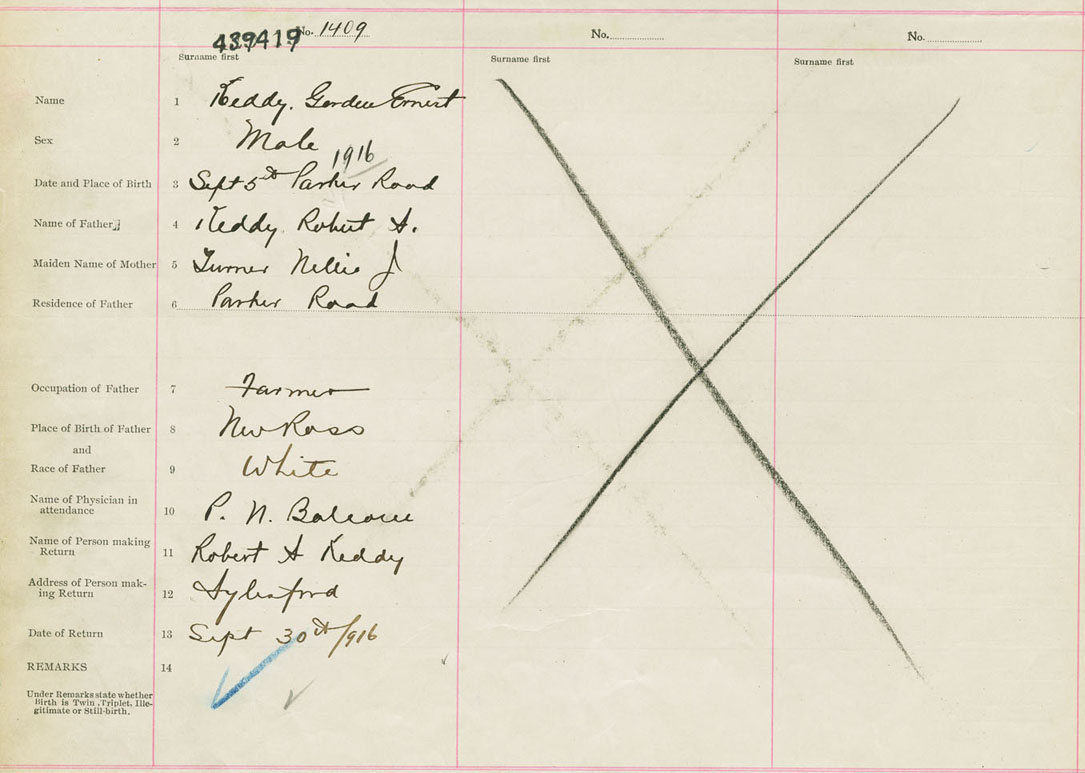 439419 No. 1409
No.
No.
Surname first
Surname first
Surname first
Name 1 Keddy, Gordon Ernest
Sex 2 Male
1916
Date and Place of Birth 3 Sept 5th Parker Road
Name of Father 4 Keddy Robert A.
Maiden Name of Mother 5 Turner Nellie J
Residence of Father 6 Parker Road
Occupation of Father 7 Farmer
Place of Birth of Father 8 New Ross
and
Race of Father 9 White
Name of Physician in
attendance 10 P. N. Balcom
Name of Person making
Return 11 Robert A Keddy
Address of Person mak-
ing Return 12 Aylesford
Date of Return 13 Sept 30th/916
REMARKS 14
Under Remarks state whether
Birth is Twin, Triplet, Ille-
gitimate or Still-birth.